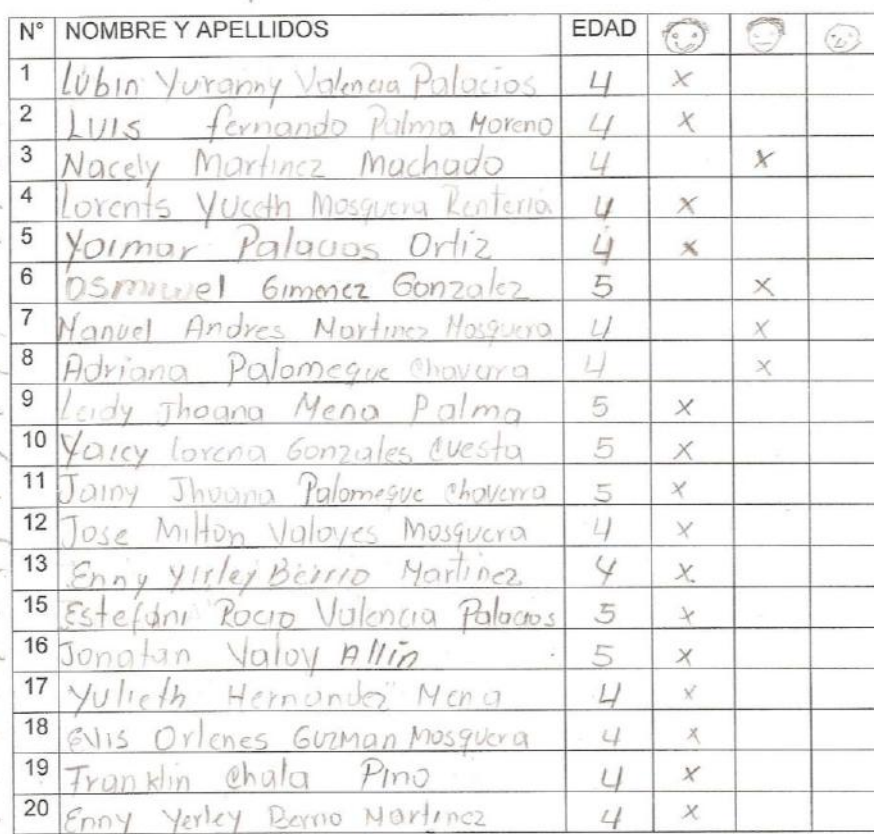 N° NOMBRE Y APELLIDOS EDAD
1 Lubin Yuranny Valencia Palacios 4 x
2 LUIS fernando Palma Moreno 4 x
3 Nacely Martinez Machado 4 x
4 Lorents Yuceth Mosquera Renteria 4 x
5 Yoimar Palacios Ortiz 4 x
6 Gimenez Gonzalez 5 x
7 Manuel Andres Martinez Mosquera 4 x
8 Adriana Palomeque Chavarra 4 x
9 Leidy Jhoana Mena Palma 5 x
10 Yaicy Lorena Gonzales Cuesta 5 x
11 Jainy Jhoana Palomeque Chaverra 5 x
12 Jose Milton Valoyes Mosquera 4 x
13 Enny Yirley Berrio Martinez 4 x
15 Estefani Rocio Valencia Palacios 5 x
16 Jonatan Valoy Allin 5 x
17 Yulieth Hernandez Mena 4 x
18 Evis Orlenes Guzman Mosquera 4 x
19 Franklin Chala Pino 4 x
20 Enny Yerley Berrio Martinez 4 x